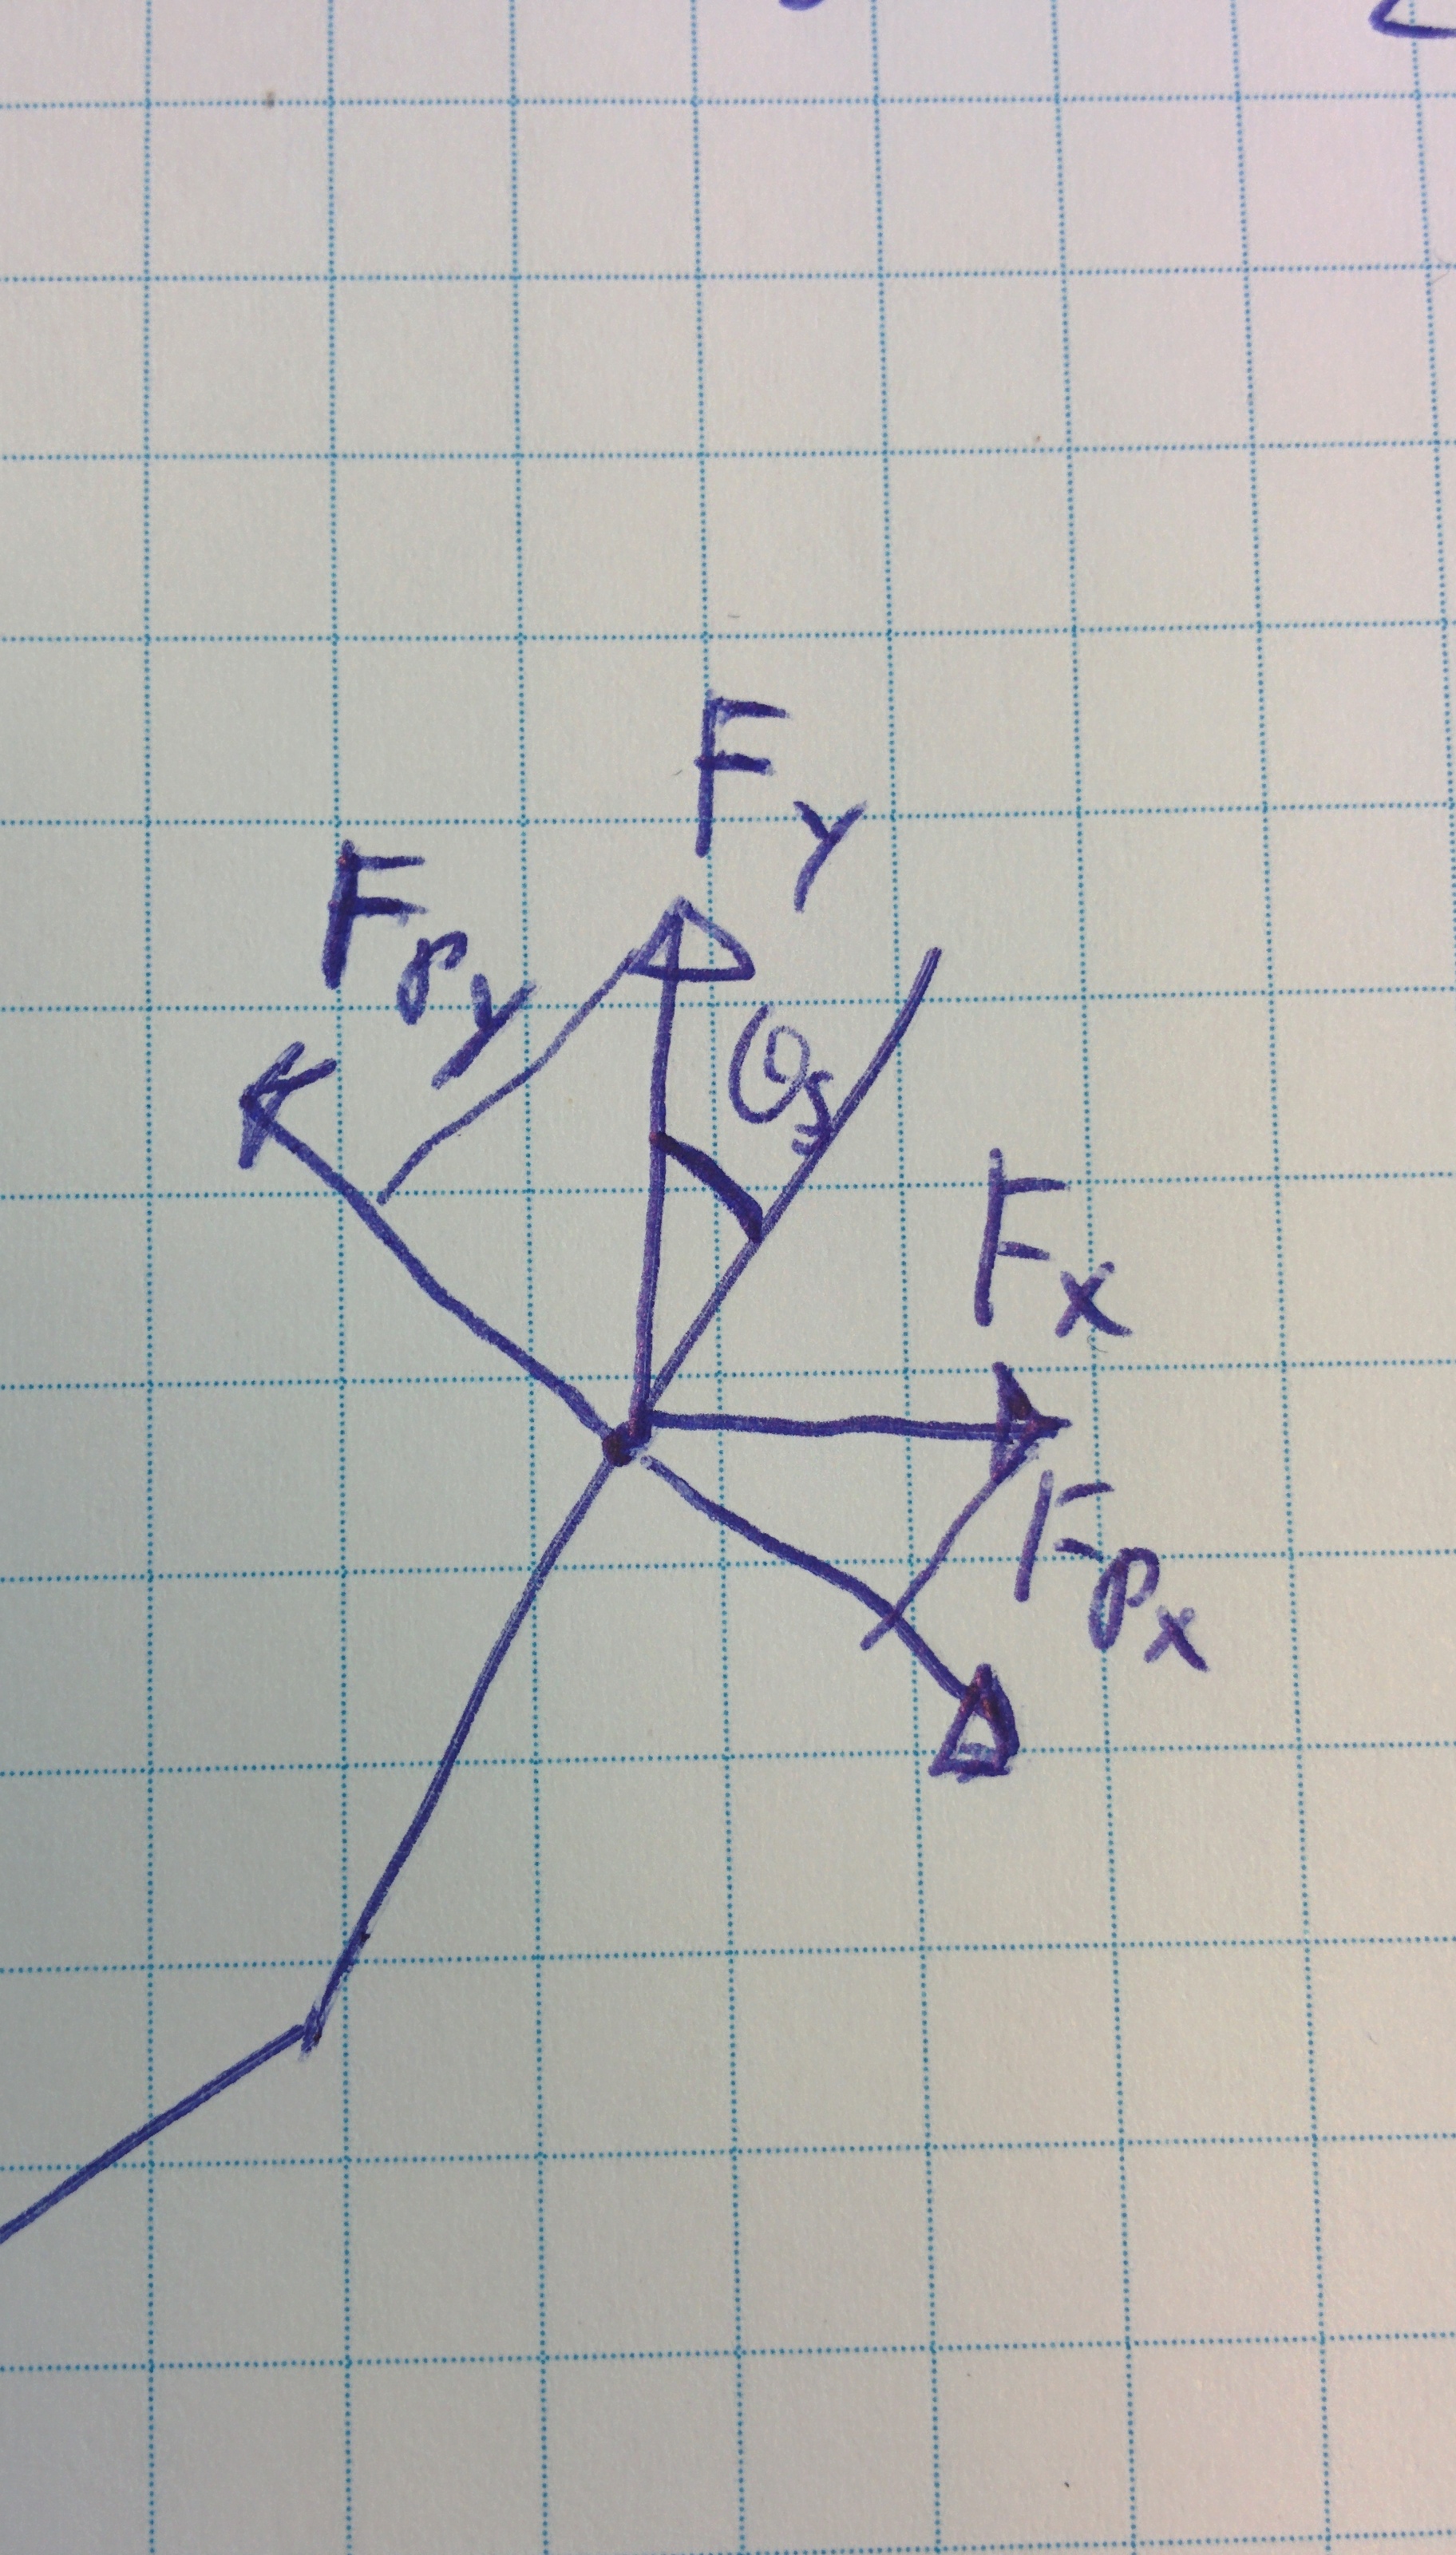 F_y
F_py
θ_s
F_x
F_px